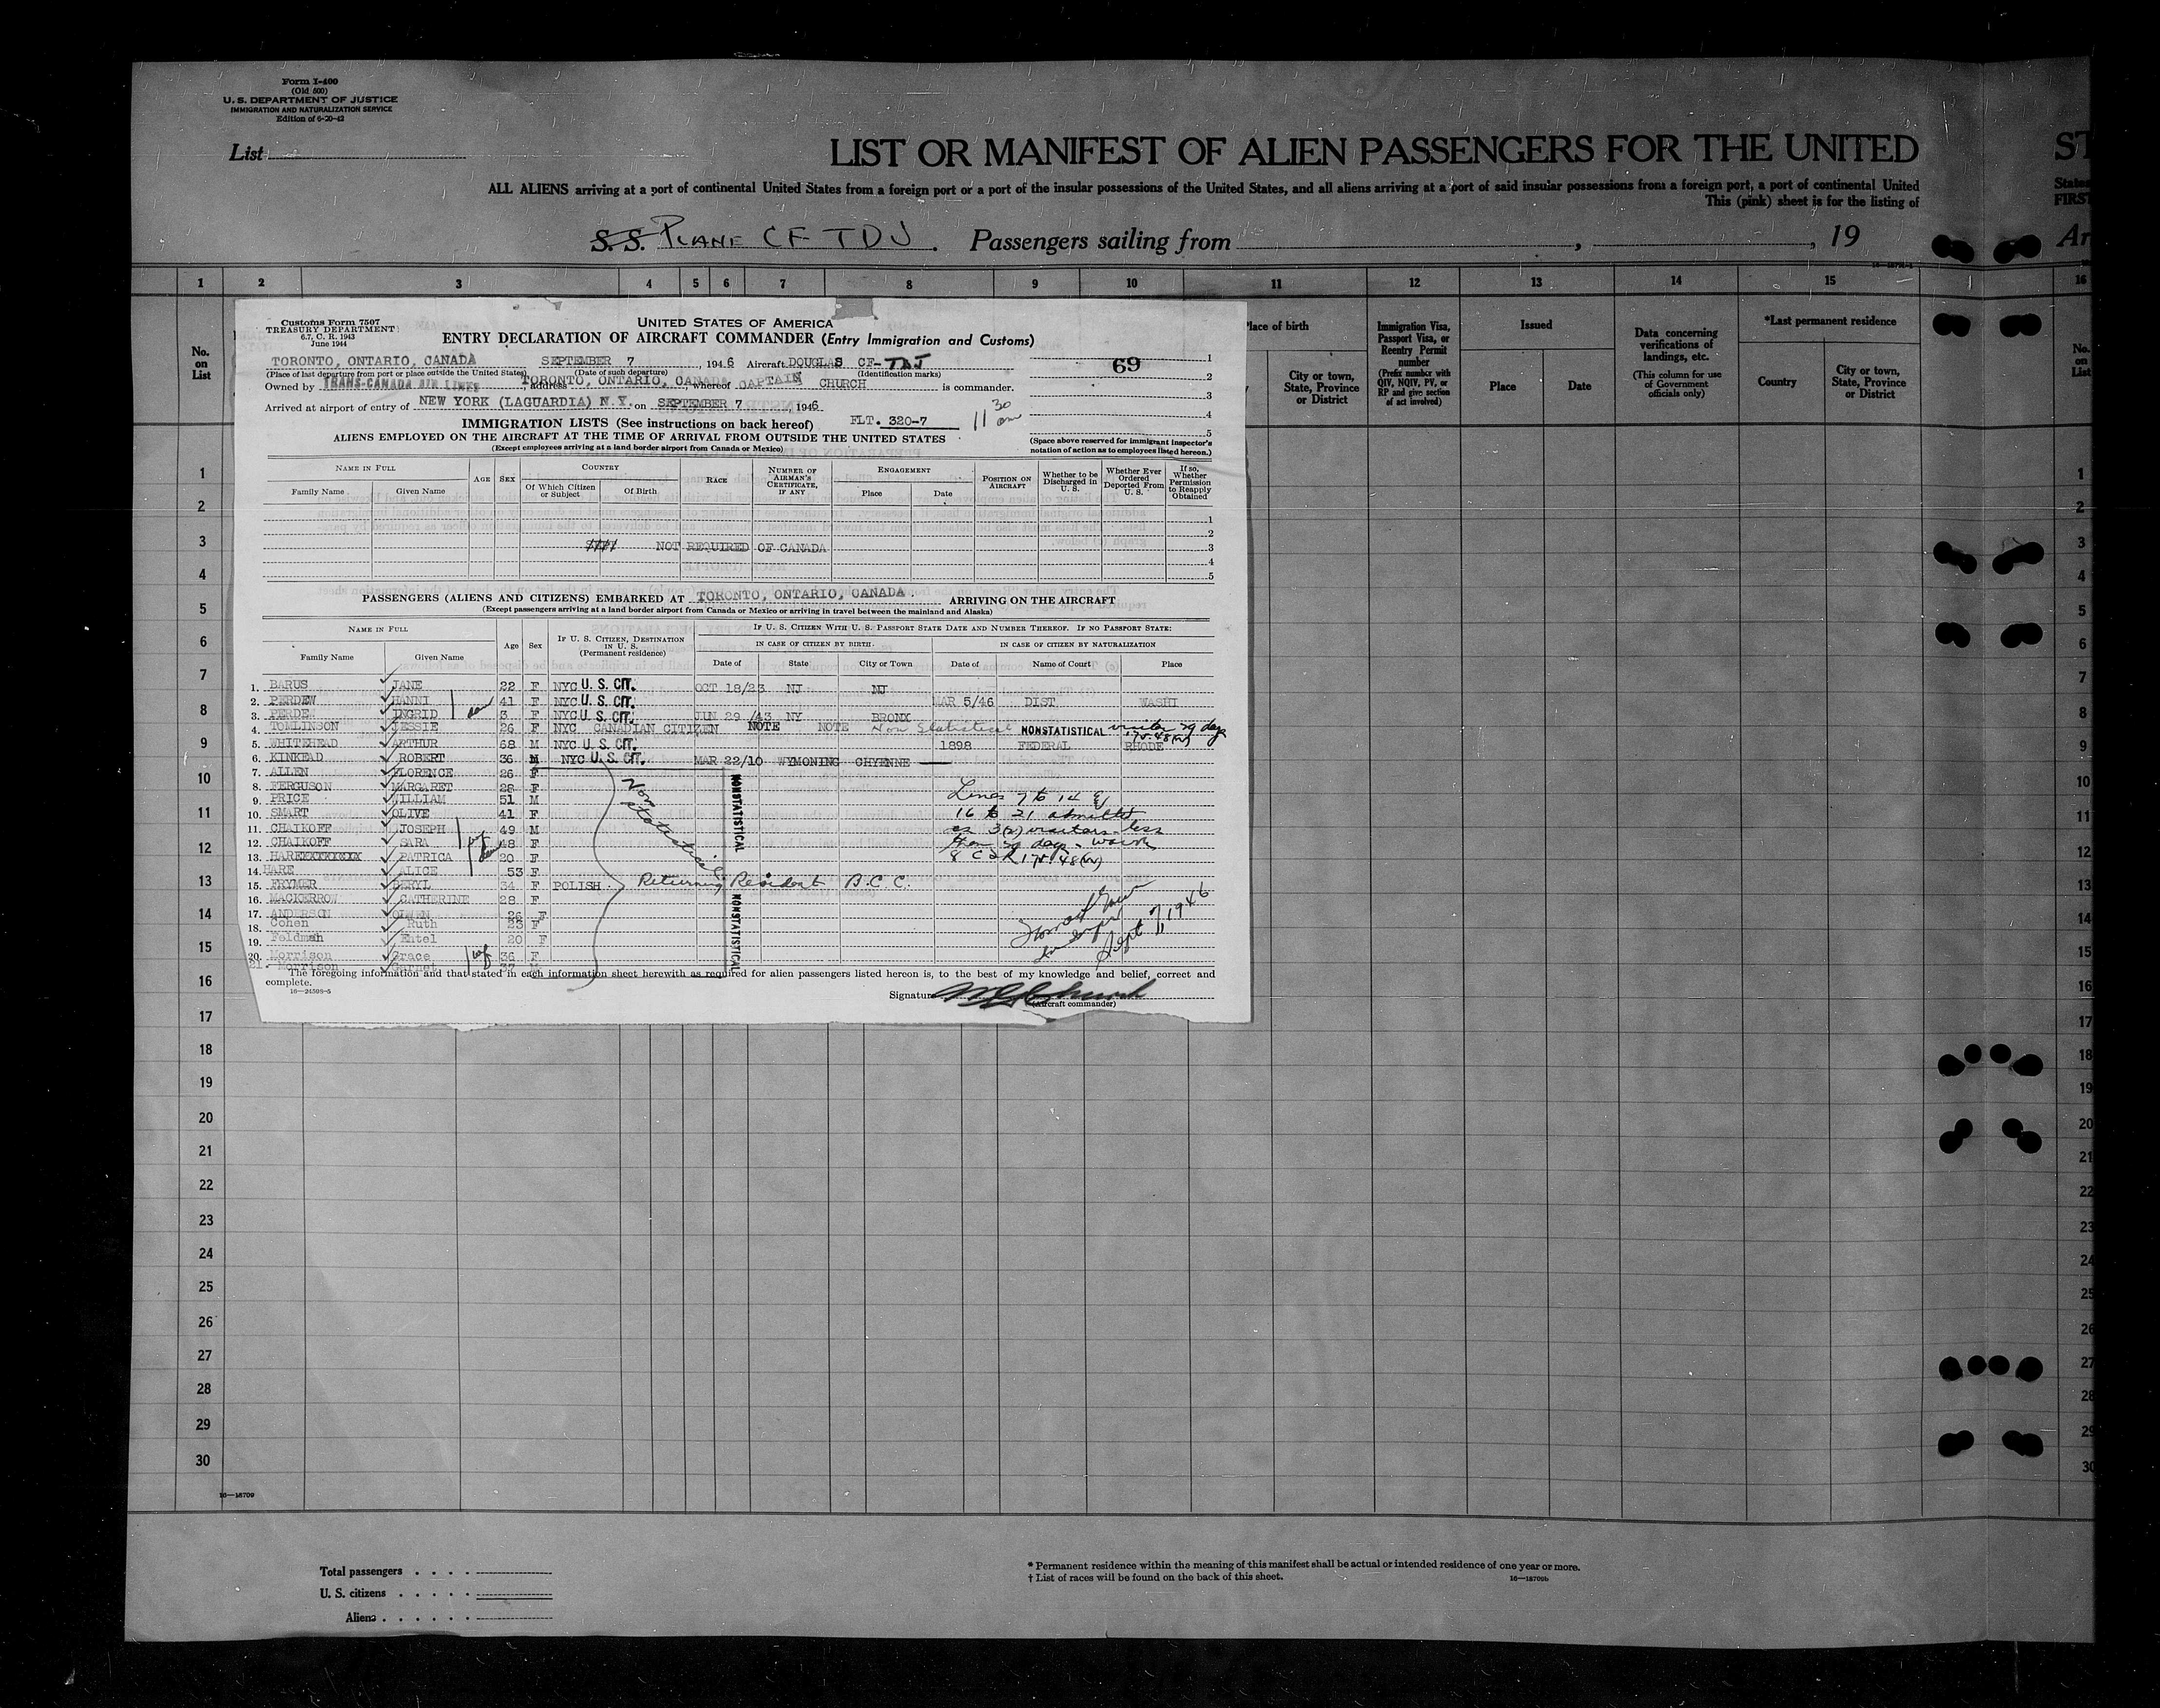 Form I-400
(Old 600)
U. S. DEPARTMENT OF JUSTICE
IMMIGRATION AND NATURALIZATION SERVICE
Edition of 6-20-42
List
LIST OR MANIFEST OF ALIEN PASSENGERS FOR THE UNITED
ST
ALL ALIENS arriving at a port of continental United States from a foreign port or a port of the insular possessions of the United States, and all aliens arriving at a port of said insular possessions from a foreign port, a port of continental United
States
This (pink) sheet is for the listing of
FIRST
S.S. PLANE CF TDJ. Passengers sailing from , , 19
Ar
1 2 3 4 5 6 7 8 9 10 11 12 13 14 15 16
No. on List
Place of birth
City or town, State, Province or District
Immigration Visa, Passport Visa, or Reentry Permit number
(Prefix number with QIV, NQIV, PV, or RP and give section of act involved)
Issued
Place Date
Data concerning verifications of landings, etc.
(This column for use of Government officials only)
*Last permanent residence
Country
City or town, State, Province or District
No. on List
Customs Form 7507
TREASURY DEPARTMENT
6.7, C. R. 1943
June 1944
UNITED STATES OF AMERICA
ENTRY DECLARATION OF AIRCRAFT COMMANDER (Entry Immigration and Customs)
TORONTO, ONTARIO, CANADA SEPTEMBER 7, 1946 Aircraft DOUGLAS CF-TDJ
69
(Place of last departure from port or place outside the United States) (Date of such departure) (Identification marks)
Owned by TRANS-CANADA AIR LINES, address TORONTO, ONTARIO, CANADA whereof CAPTAIN CHURCH is commander.
Arrived at airport of entry of NEW YORK (LAGUARDIA) N.Y. on SEPTEMBER 7, 1946
FLT. 320-7
11 30 am
IMMIGRATION LISTS (See instructions on back hereof)
ALIENS EMPLOYED ON THE AIRCRAFT AT THE TIME OF ARRIVAL FROM OUTSIDE THE UNITED STATES
(Except employees arriving at a land border airport from Canada or Mexico)
(Space above reserved for immigrant inspector's notation of action as to employees listed hereon.)
NAME IN FULL
Family Name Given Name
AGE SEX
COUNTRY
Of Which Citizen or Subject Of Birth
RACE
NUMBER OF AIRMAN'S CERTIFICATE, IF ANY
ENGAGEMENT
Place Date
POSITION ON AIRCRAFT
Whether to be Discharged in U. S.
Whether Ever Ordered Deported From U. S.
If so, Whether Permission to Reapply Obtained
NOT REQUIRED OF CANADA
PASSENGERS (ALIENS AND CITIZENS) EMBARKED AT TORONTO, ONTARIO, CANADA ARRIVING ON THE AIRCRAFT
(Except passengers arriving at a land border airport from Canada or Mexico or arriving in travel between the mainland and Alaska)
NAME IN FULL
Family Name Given Name
Age Sex
IF U. S. CITIZEN, DESTINATION IN U. S.
(Permanent residence)
IF U. S. CITIZEN WITH U. S. PASSPORT STATE DATE AND NUMBER THEREOF. IF NO PASSPORT STATE:
IN CASE OF CITIZEN BY BIRTH. IN CASE OF CITIZEN BY NATURALIZATION
Date of State City or Town Date of Name of Court Place
1. BARUS JANE 22 F NYC U. S. CIT. OCT 18/23 NJ NJ
2. PERDEW HANNI 41 F NYC U. S. CIT. MAR 5/46 DIST WASHI
3. PERDEW INGRID 3 F NYC U. S. CIT. JUN 29 /43 NY BRONX
4. TOMLINSON JESSIE 26 F NYC CANADIAN CITIZEN NOTE NOTE Non Statistical NONSTATISTICAL visitor 29 days 175.48(a)
5. WHITEHEAD ARTHUR 68 M NYC U. S. CIT. 1898 FEDERAL RHODE
6. KINKEAD ROBERT 36 M NYC U. S. CIT. MAR 22/10 WYMONING CHYENNE
7. ALLEN FLORENCE 26 F
8. FERGUSON MARGARET 28 F
9. PRICE WILLIAM 51 M
10. SMART OLIVE 41 F
11. CHAIKOFF JOSEPH 49 M
12. CHAIKOFF SARA 48 F
13. HARE PATRICA 20 F
14. HARE ALICE 53 F
15. FRYMER BERYL 34 F POLISH Returning Resident B.C.C.
16. MACKERROW CATHERINE 28 F
17. ANDERSON OLWEN 26 F
18. Cohen Ruth 23 F
19. Feldman Entel 20 F
20. Morrison Grace 36 F
21. Morrison Garnet 37
Non statistical
NONSTATISTICAL
NONSTATISTICAL
Lines 7 to 14 &
16 to 21 admitted
as 3(2) visitors less
than 30 days
8 CFR 175.48(a)
Sept 7, 1946
The foregoing information and that stated in each information sheet herewith as required for alien passengers listed hereon is, to the best of my knowledge and belief, correct and complete.
16—24598-5
Signature
(Aircraft commander)
1
2
3
4
5
6
7
8
9
10
11
12
13
14
15
16
17
18
19
20
21
22
23
24
25
26
27
28
29
30
16—18709
Total passengers
U. S. citizens
Aliens
* Permanent residence within the meaning of this manifest shall be actual or intended residence of one year or more.
† List of races will be found on the back of this sheet.
16—18709b